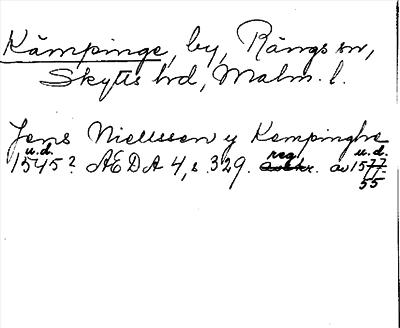 Kämpinge, by, Rängs sn,
Skytts hd, Malm. l.
Jens Niellssen y Kempinghe
u.d. reg u.d.
1545? ÆDA 4, s. 329. av 1577
55